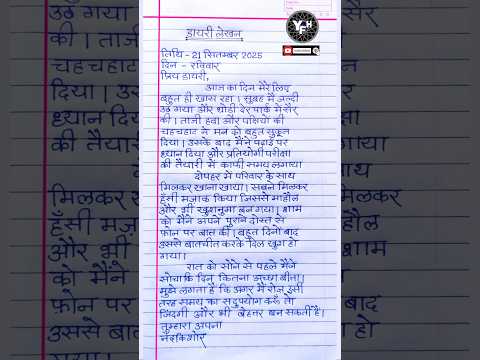 डायरी लेखन
तिथि - 21 सितम्बर 2025
दिन - रविवार
प्रिय डायरी,
आज का दिन मेरे लिए
बहुत ही खास रहा। सुबह मैं जल्दी
उठ गया और थोड़ी देर पार्क में सैर
की। ताजी हवा और पक्षियों की
चहचहाट ने मन को बहुत सुकून
दिया। उसके बाद मैंने पढ़ाई पर
ध्यान दिया और प्रतियोगी परीक्षा
की तैयारी में काफी समय लगाया
दोपहर में परिवार के साथ
मिलकर खाना खाया। सबने मिलकर
हँसी मज़ाक किया जिससे माहौल
और भी खुशनुमा बन गया। शाम
को मैंने अपने पुराने दोस्त से
फोन पर बात की। बहुत दिनों बाद
उससे बातचीत करके दिल खुश हो
गया।
रात को सोने से पहले मैंने
सोचा कि दिन कितना अच्छा बीता।
मुझे लगता है कि अगर मैं रोज़ इसी
तरह समय का सदुपयोग करूँ तो
जिंदगी और भी बेहतर बन सकती है।
तुम्हारा अपना
नंदकिशोर